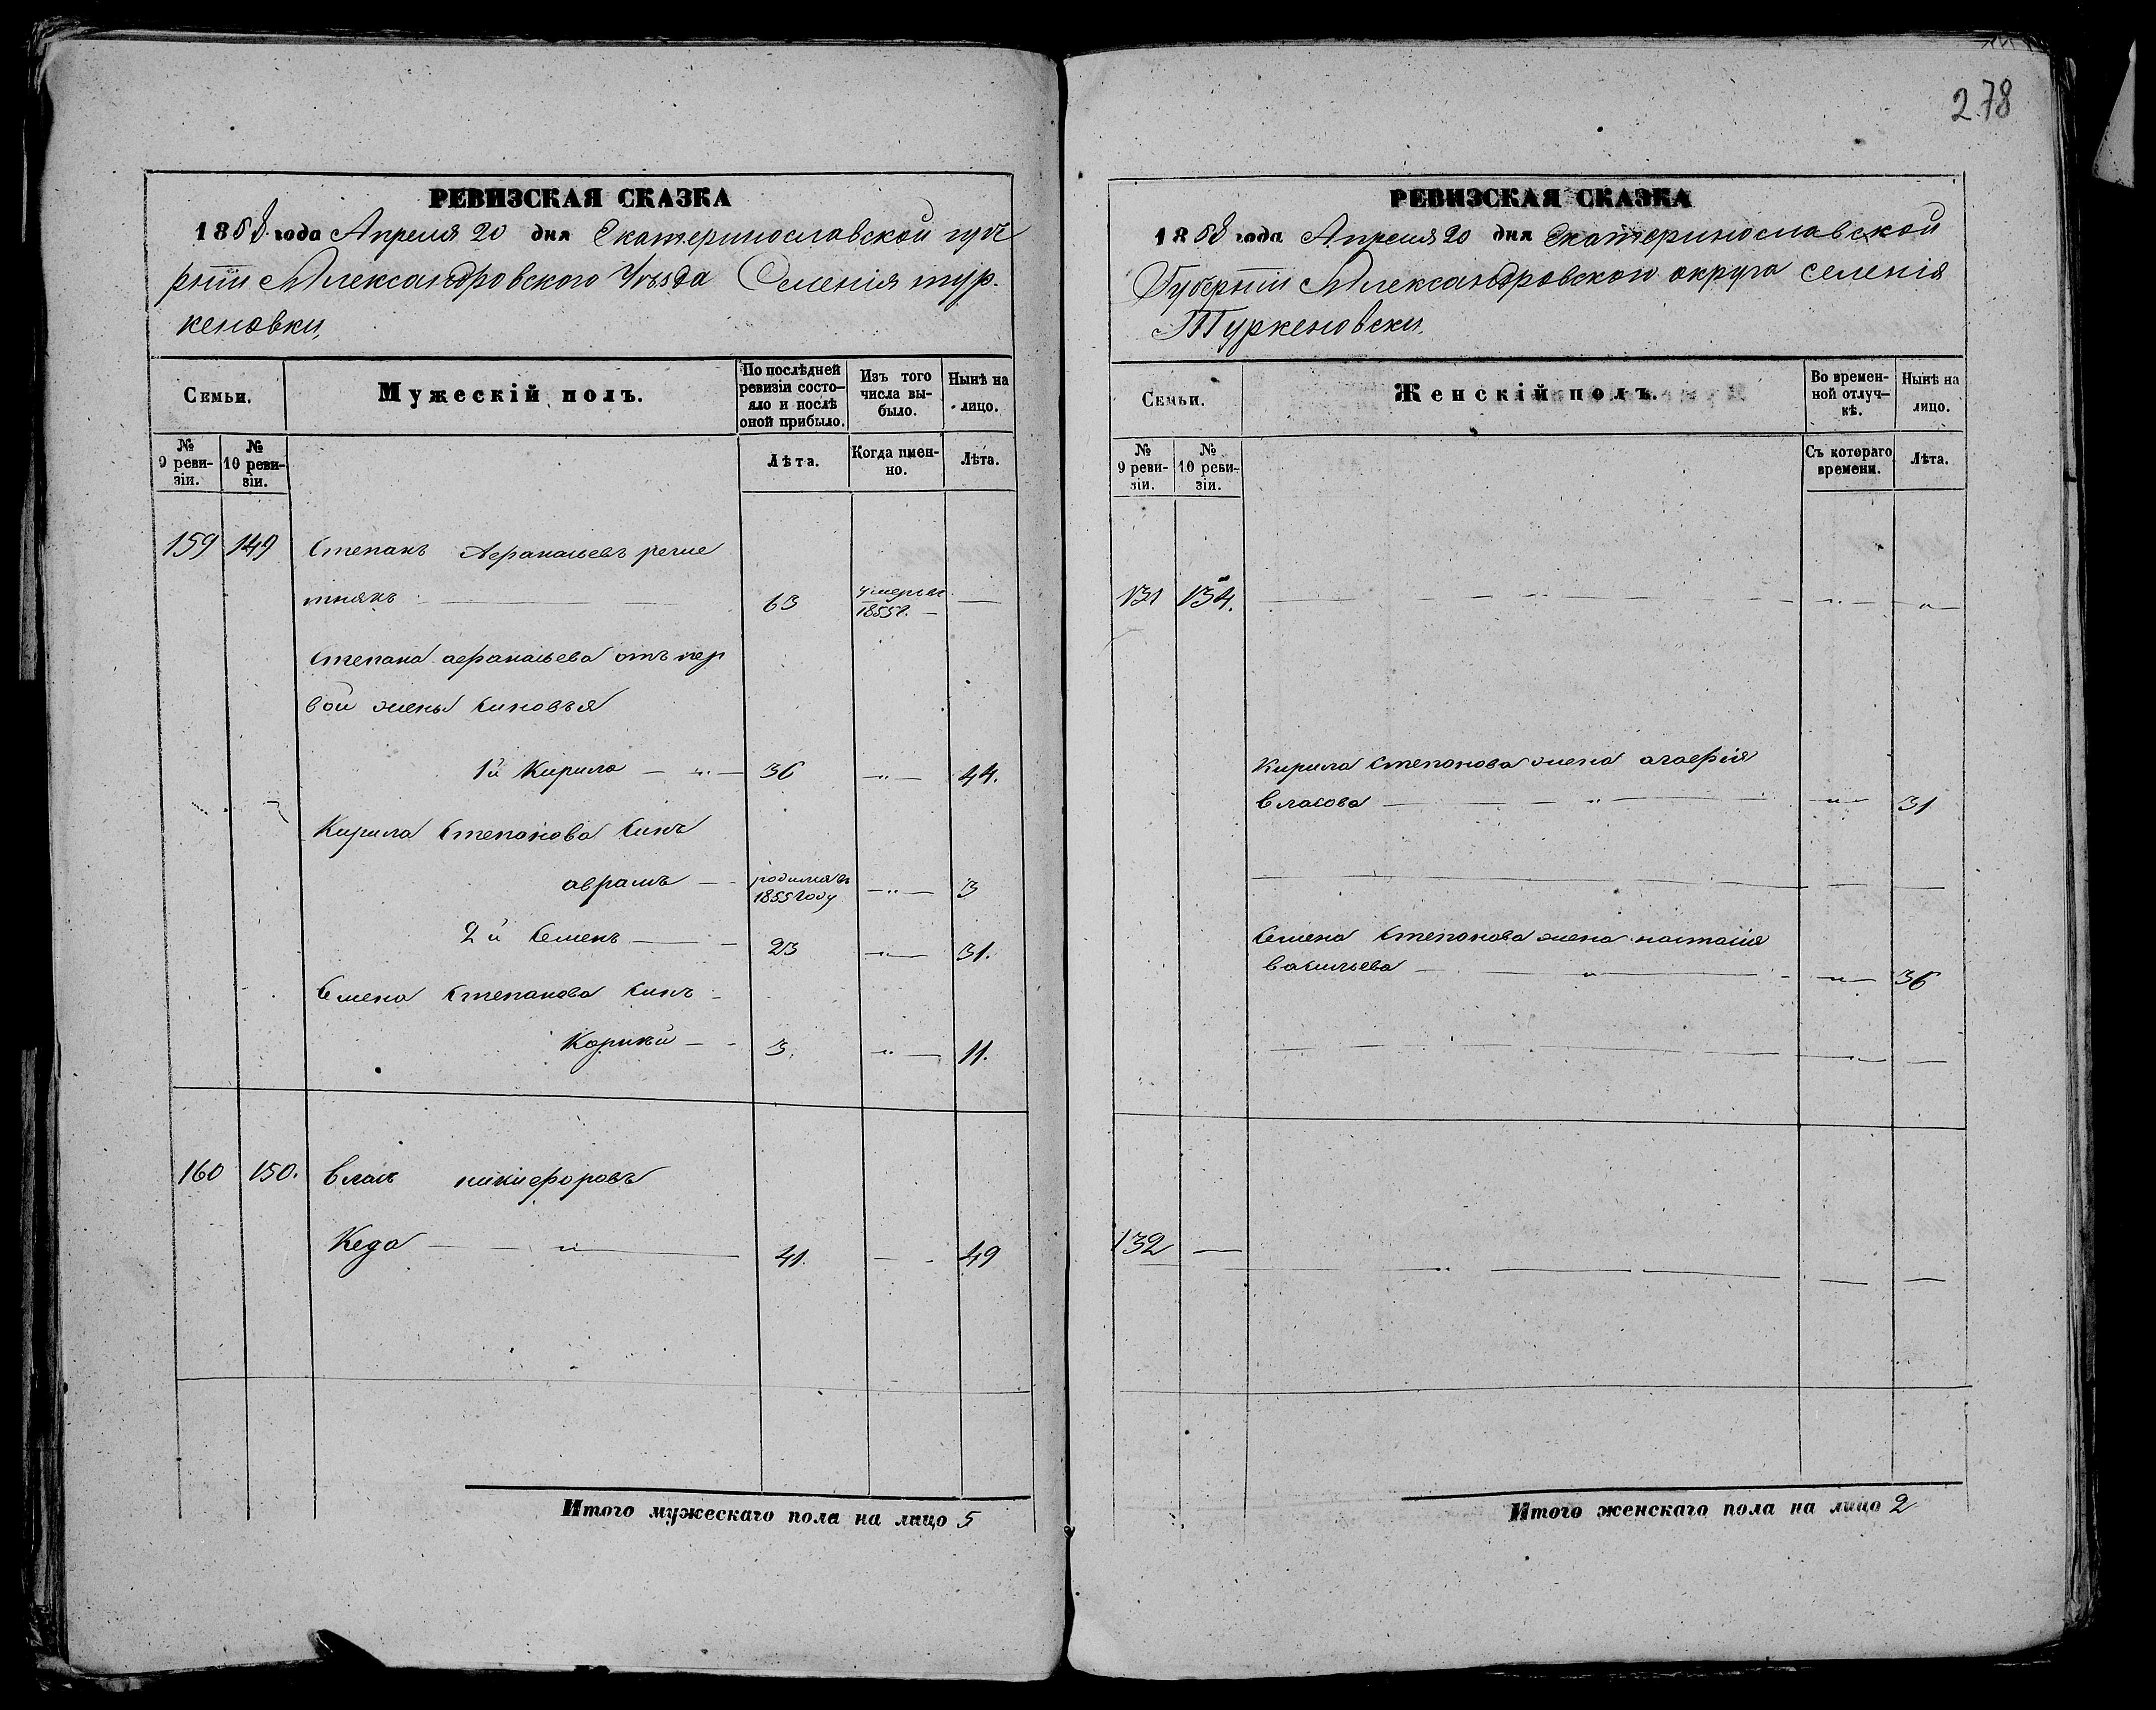 278
РЕВИЗСКАЯ СКАЗКА
1858 года Апреля 20 дня Екатеринославской губе
рніи Александровского Уѣзда Селенія тур.
кеновки,
Семьи.
Мужескій полъ.
По послѣдней ревизіи состояло и послѣ оной прибыло.
Изъ того числа выбыло.
Нынѣ на лицо.
№ 9 ревизіи.
№ 10 ревизіи.
Лѣта.
Когда имен-но.
Лѣта.
159 149 Степанъ Афанасьевъ реше
тнякъ 63 умеръ въ 1855 г.
Степана афанасьева отъ пер
вой жены синовья
1й Кирило 36 44.
Кирила Степанова Синъ
аврамъ родился въ 1855 году 3
2й Семенъ 23 31.
Семена Степанова Синъ
Корнѣй 3. 11.
160 150. Власъ никифоровъ
Кеда 41. 49
Итого мужескаго пола на лицо 5
РЕВИЗСКАЯ СКАЗКА
1858 года Апреля 20 дня Екатеринославской
Губерніи Александровского округа селенія
Туркеновски.
Семьи.
Женскій полъ.
Во времен-ной отлуч-кѣ.
Нынѣ на лицо.
№ 9 реви-зіи.
№ 10 реви-зіи.
Съ котораго времени.
Лѣта.
131 134.
Кирила Степанова жена агафія
Власова 31
Семена Степанова жена настасія
васильева 36
132
Итого женскаго пола на лицо 2